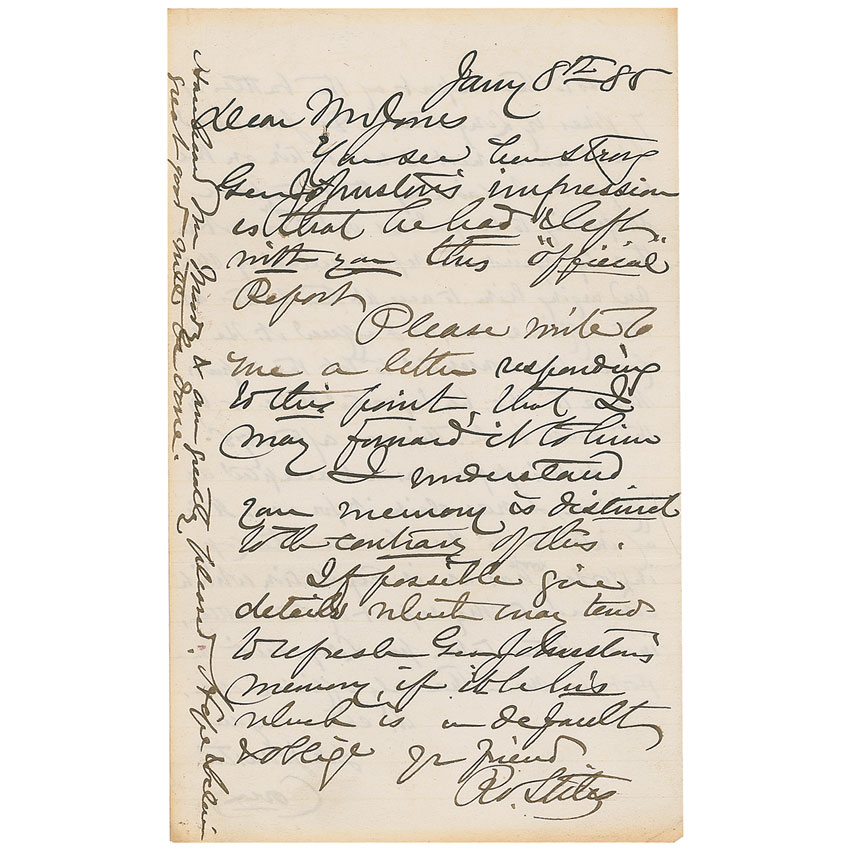 Jany 8th 85
Dear Mr Jones
You see how strong
Gen Johnston's impression
is that he had "left
with you this "official"
Report
Please write to
me a letter responding
to this point, that I
may forward it to him
I understand
your memory is distinct
to the contrary of this.
If possible give
details which may tend
to refresh Gen Johnston's
memory, if it be his
which is in default
& oblige yr friend
Ro. Stiles
Have heard Mr Moody & am greatly pleased. Hope & believe
great good will be done.